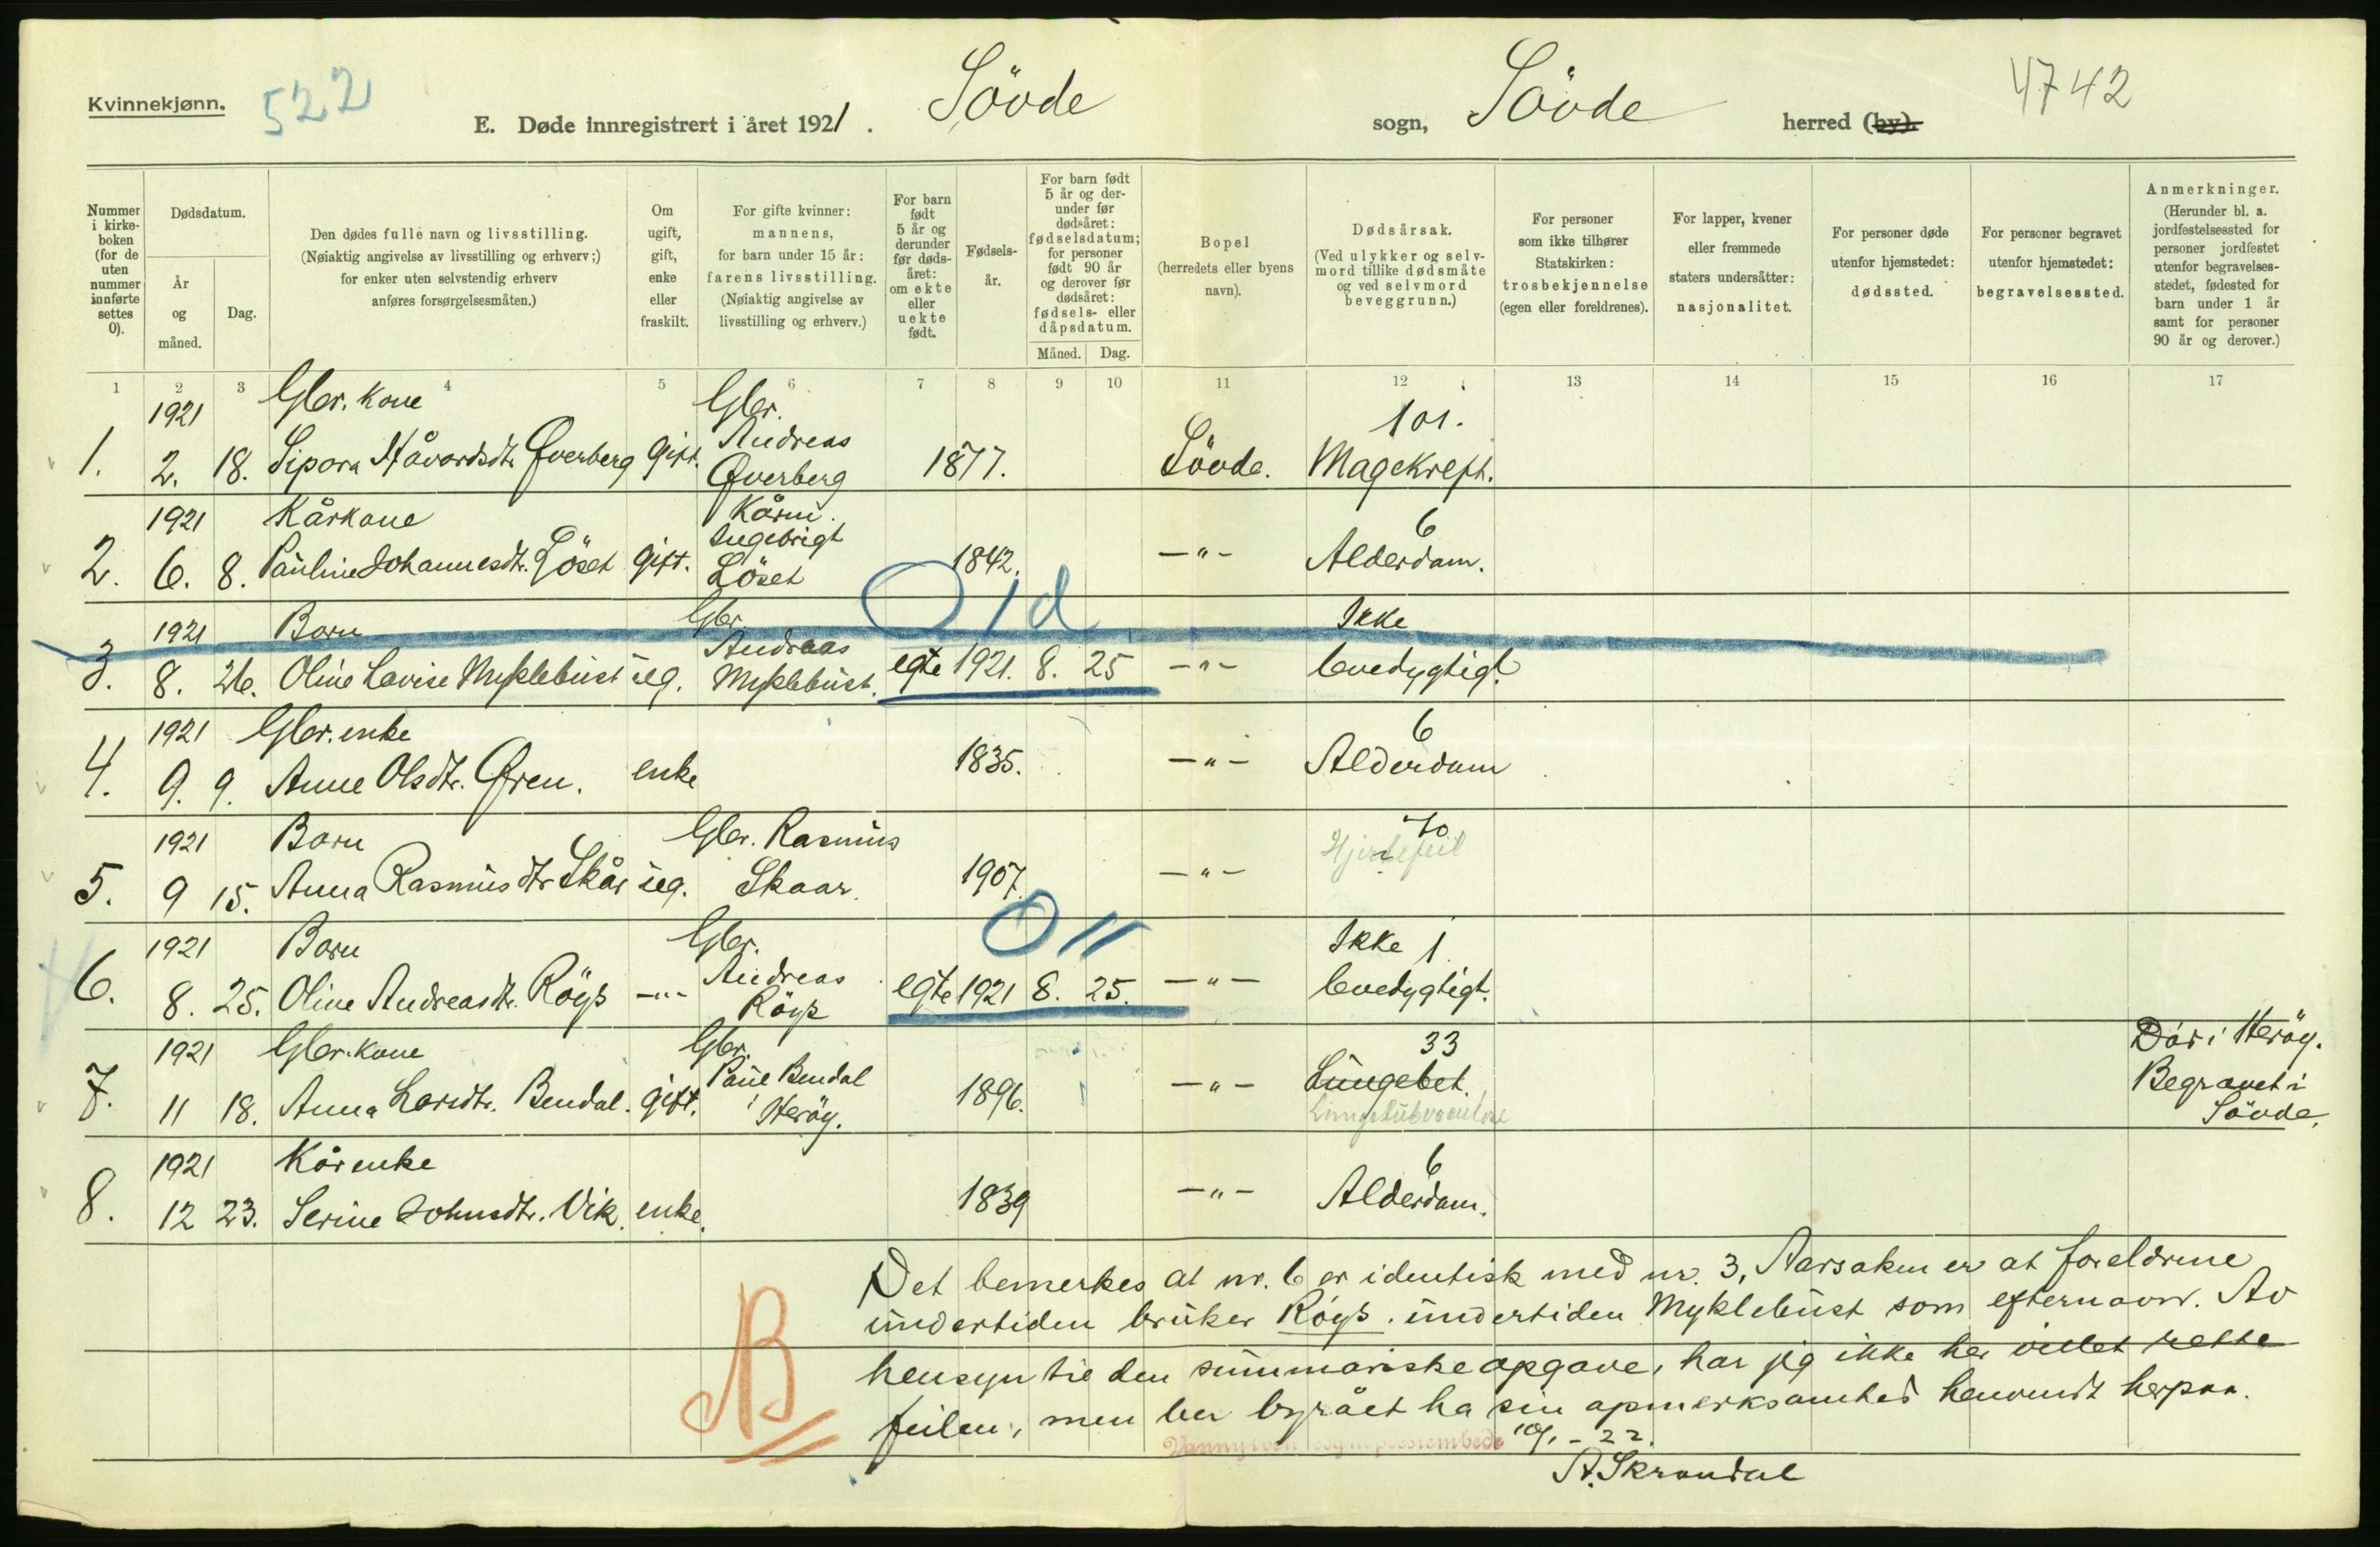 Kvinnekjønn.
522
E. Døde innregistrert i året 1921.
Sövde
sogn,
Sövde
herred (by).
4742
Nummer i kirkeboken (for de uten nummer innførte settes 0).
Dødsdatum.
År og måned.
Dag.
Den dødes fulle navn og livsstilling.
(Nøiaktig angivelse av livsstilling og erhverv;)
for enker uten selvstendig erhverv
anføres forsørgelsesmåten.)
Om ugift, gift, enke eller fraskilt.
For gifte kvinner: mannens, for barn under 15 år: farens livsstilling. (Nøiaktig angivelse av livsstilling og erhverv.)
For barn født 5 år og derunder før dødsåret: om ekte eller uekte født.
Fødselsår.
For barn født 5 år og derunder før dødsåret: fødselsdatum; for personer født 90 år og derover før dødsåret: fødsels- eller dåpsdatum.
Måned. Dag.
Bopel (herredets eller byens navn).
Dødsårsak. (Ved ulykker og selvmord tillike dødsmåte og ved selvmord beveggrunn.)
For personer som ikke tilhører Statskirken: trosbekjennelse (egen eller foreldrenes).
For lapper, kvener eller fremmede staters undersåtter: nasjonalitet.
For personer døde utenfor hjemstedet: dødssted.
For personer begravet utenfor hjemstedet: begravelsessted.
Anmerkninger. (Herunder bl. a. jordfestelsessted for personer jordfestet utenfor begravelsesstedet, fødested for barn under 1 år samt for personer 90 år og derover.)
1 2 3 4 5 6 7 8 9 10 11 12 13 14 15 16 17
1921 Gbr. kone Gbr. 101.
1. 2. 18. Sipora Håvardsdtr. Øverberg gift. Andreas Øverberg 1877. Sövde. Magekreft.
1921 Kårkone Kårm. 6
2. 6. 8. Pauline Johannesdtr. Löset gift. Ingebrigt Löset 1842. —"— Alderdom.
O 1 d
1921 Barn Gbr. Ikke
3. 8. 26. Oline Lovise Myklebust ug. Andreas Myklebust. egte 1921. 8. 25 —"— levedygtigt.
1921 Gbr. enke 6
4. 9. 9. Anne Olsdtr. Ören. enke 1835. —"— Alderdom
1921 Barn Gbr. Rasmus 70
5. 9 15. Anna Rasmusdtr Skår ug. Skaar. 1907. —"— Hjertefeil
O 11
1921 Barn Gbr. Ikke 1
6. 8. 25. Oline Andreasdtr. Röys —"— Andreas Röys egte 1921 8. 25. —"— levedygtigt.
1921 Gbr. kone Gbr. 33 Dör i Heröy.
7. 11 18. Anna Larsdtr. Bendal. gift. Paul Bendal i Heröy. 1896. —"— Lungebet. Begravet i
Lungetuberculose Sövde.
1921 Kårenke 6
8. 12 23. Serine Johnsdtr. Vik. enke. 1839 —"— Alderdom.
Det bemerkes at nr. 6 er identisk med nr. 3, Aarsaken er at foreldrene
undertiden bruker Röys. undertiden Myklebust som efternavn. Av
hensyn til den summariske opgave, har jeg ikke her villet rette
feilen, men ber byrået ha sin opmerksomhed henvendt herpaa.
B
Vannylven sogneprestembede 10/1 - 22.
A. Skrondal